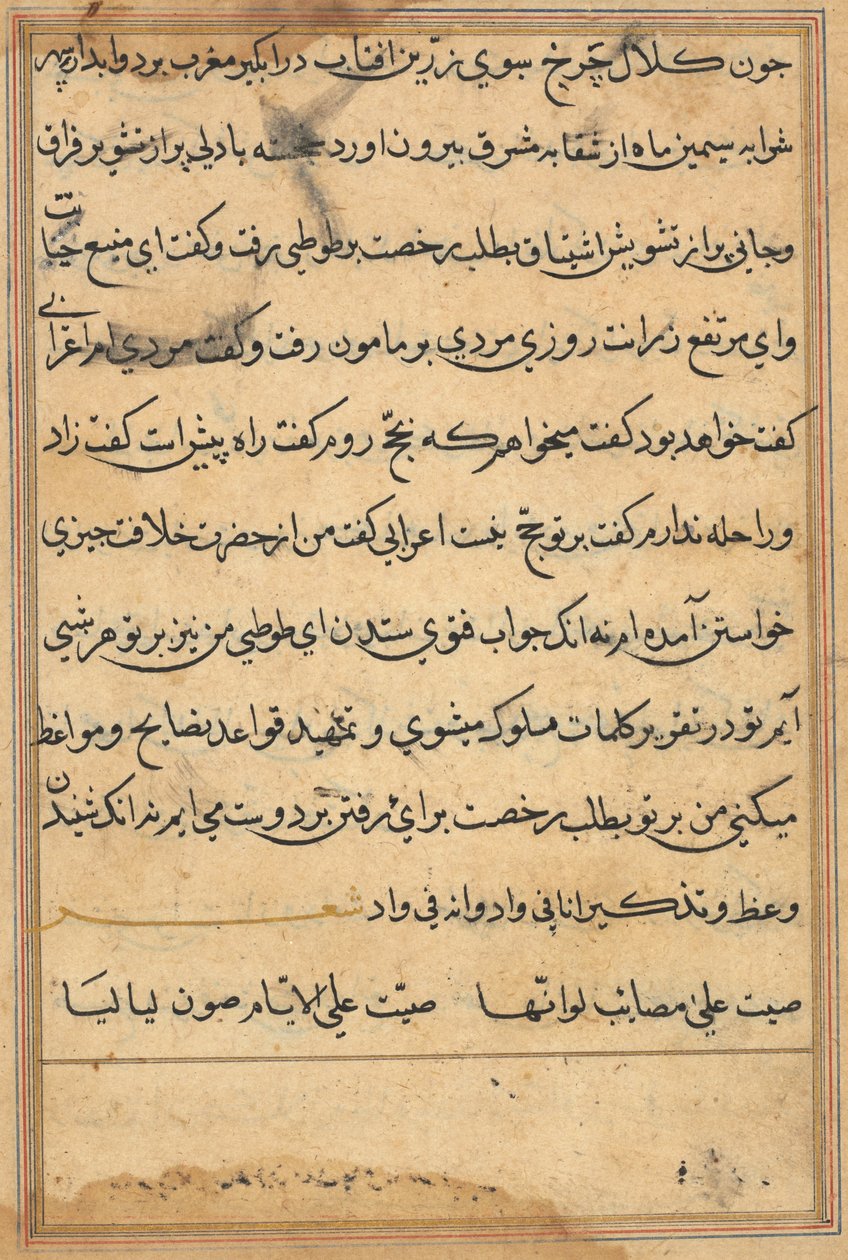 جون کلال چرخ سبوی زرین افتاب در ابکیر مغرب برد و ابدار سپهر
شرابه سیمین ماه از شقابه مشرق بیرون اورد خجسته با دلی پر از تشویر فراق
و جانی پر از تشویش اشتیاق بطلب رخصت بر طوطی رفت و کفت ای منبع حیات
و ای مرتفع روزی مردی بر مامون رفت و کفت مردی ام اعرابی
کفت خواهد بود کفت میخواهم که بحج روم کفت راه پیش است کفت زاد
و راحله ندارم کفت بر تو حج نیست اعرابی کفت من از حضرت خلافت جیزی
خواستن آمده ام نه انک جواب فتوی ستدن ای طوطی من نیز بر تو هر شبی
آیم تو در تقریر کلمات مسلوک میشوی و تمهید قواعد نصایح و مواعظ
میکنی من بر تو بطلب رخصت برای رفتن بر دوست می ایم نه انک شنیدن
وعظ و تذکیر انا فی واد وانه فی واد شعر
صبت علی مصائب لو انّها صبّت علی الایّام صرن لیالیَا